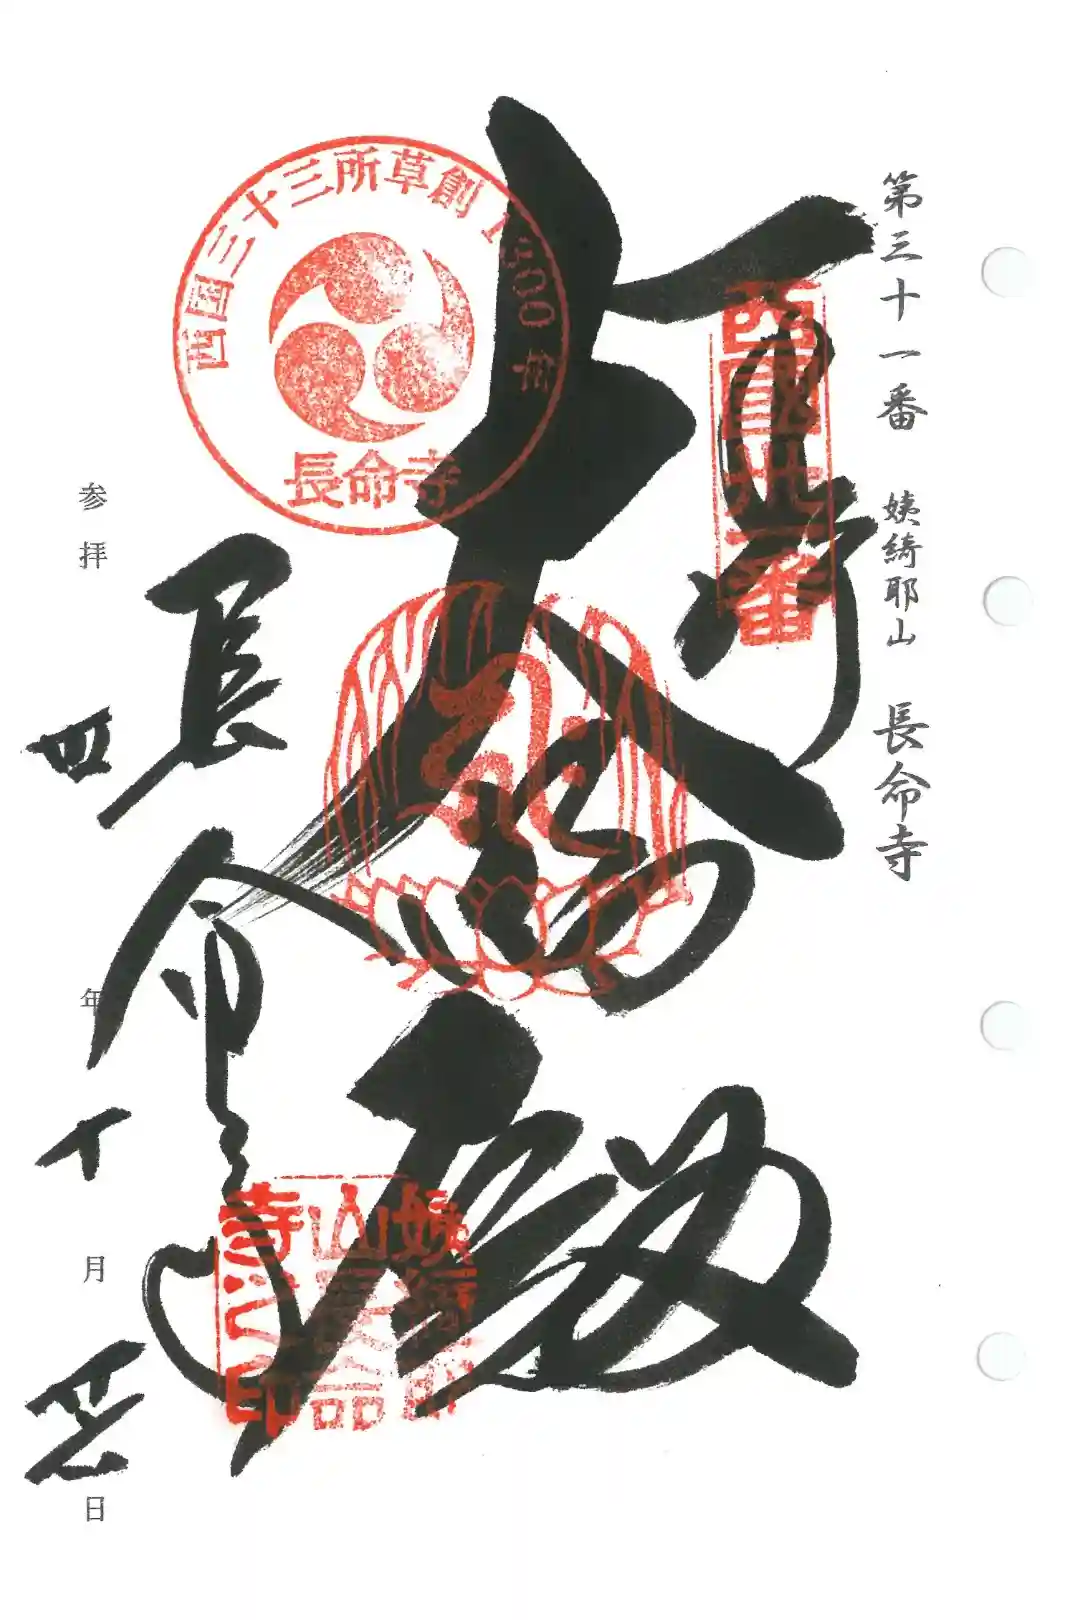 第三十一番 姨綺耶山 長命寺
奉拝
西国三十三所草創1300年
長命寺
西國卅一番
大悲殿
長命寺
姨綺耶
山長命
寺之印
参拝 四 年 十 月 日